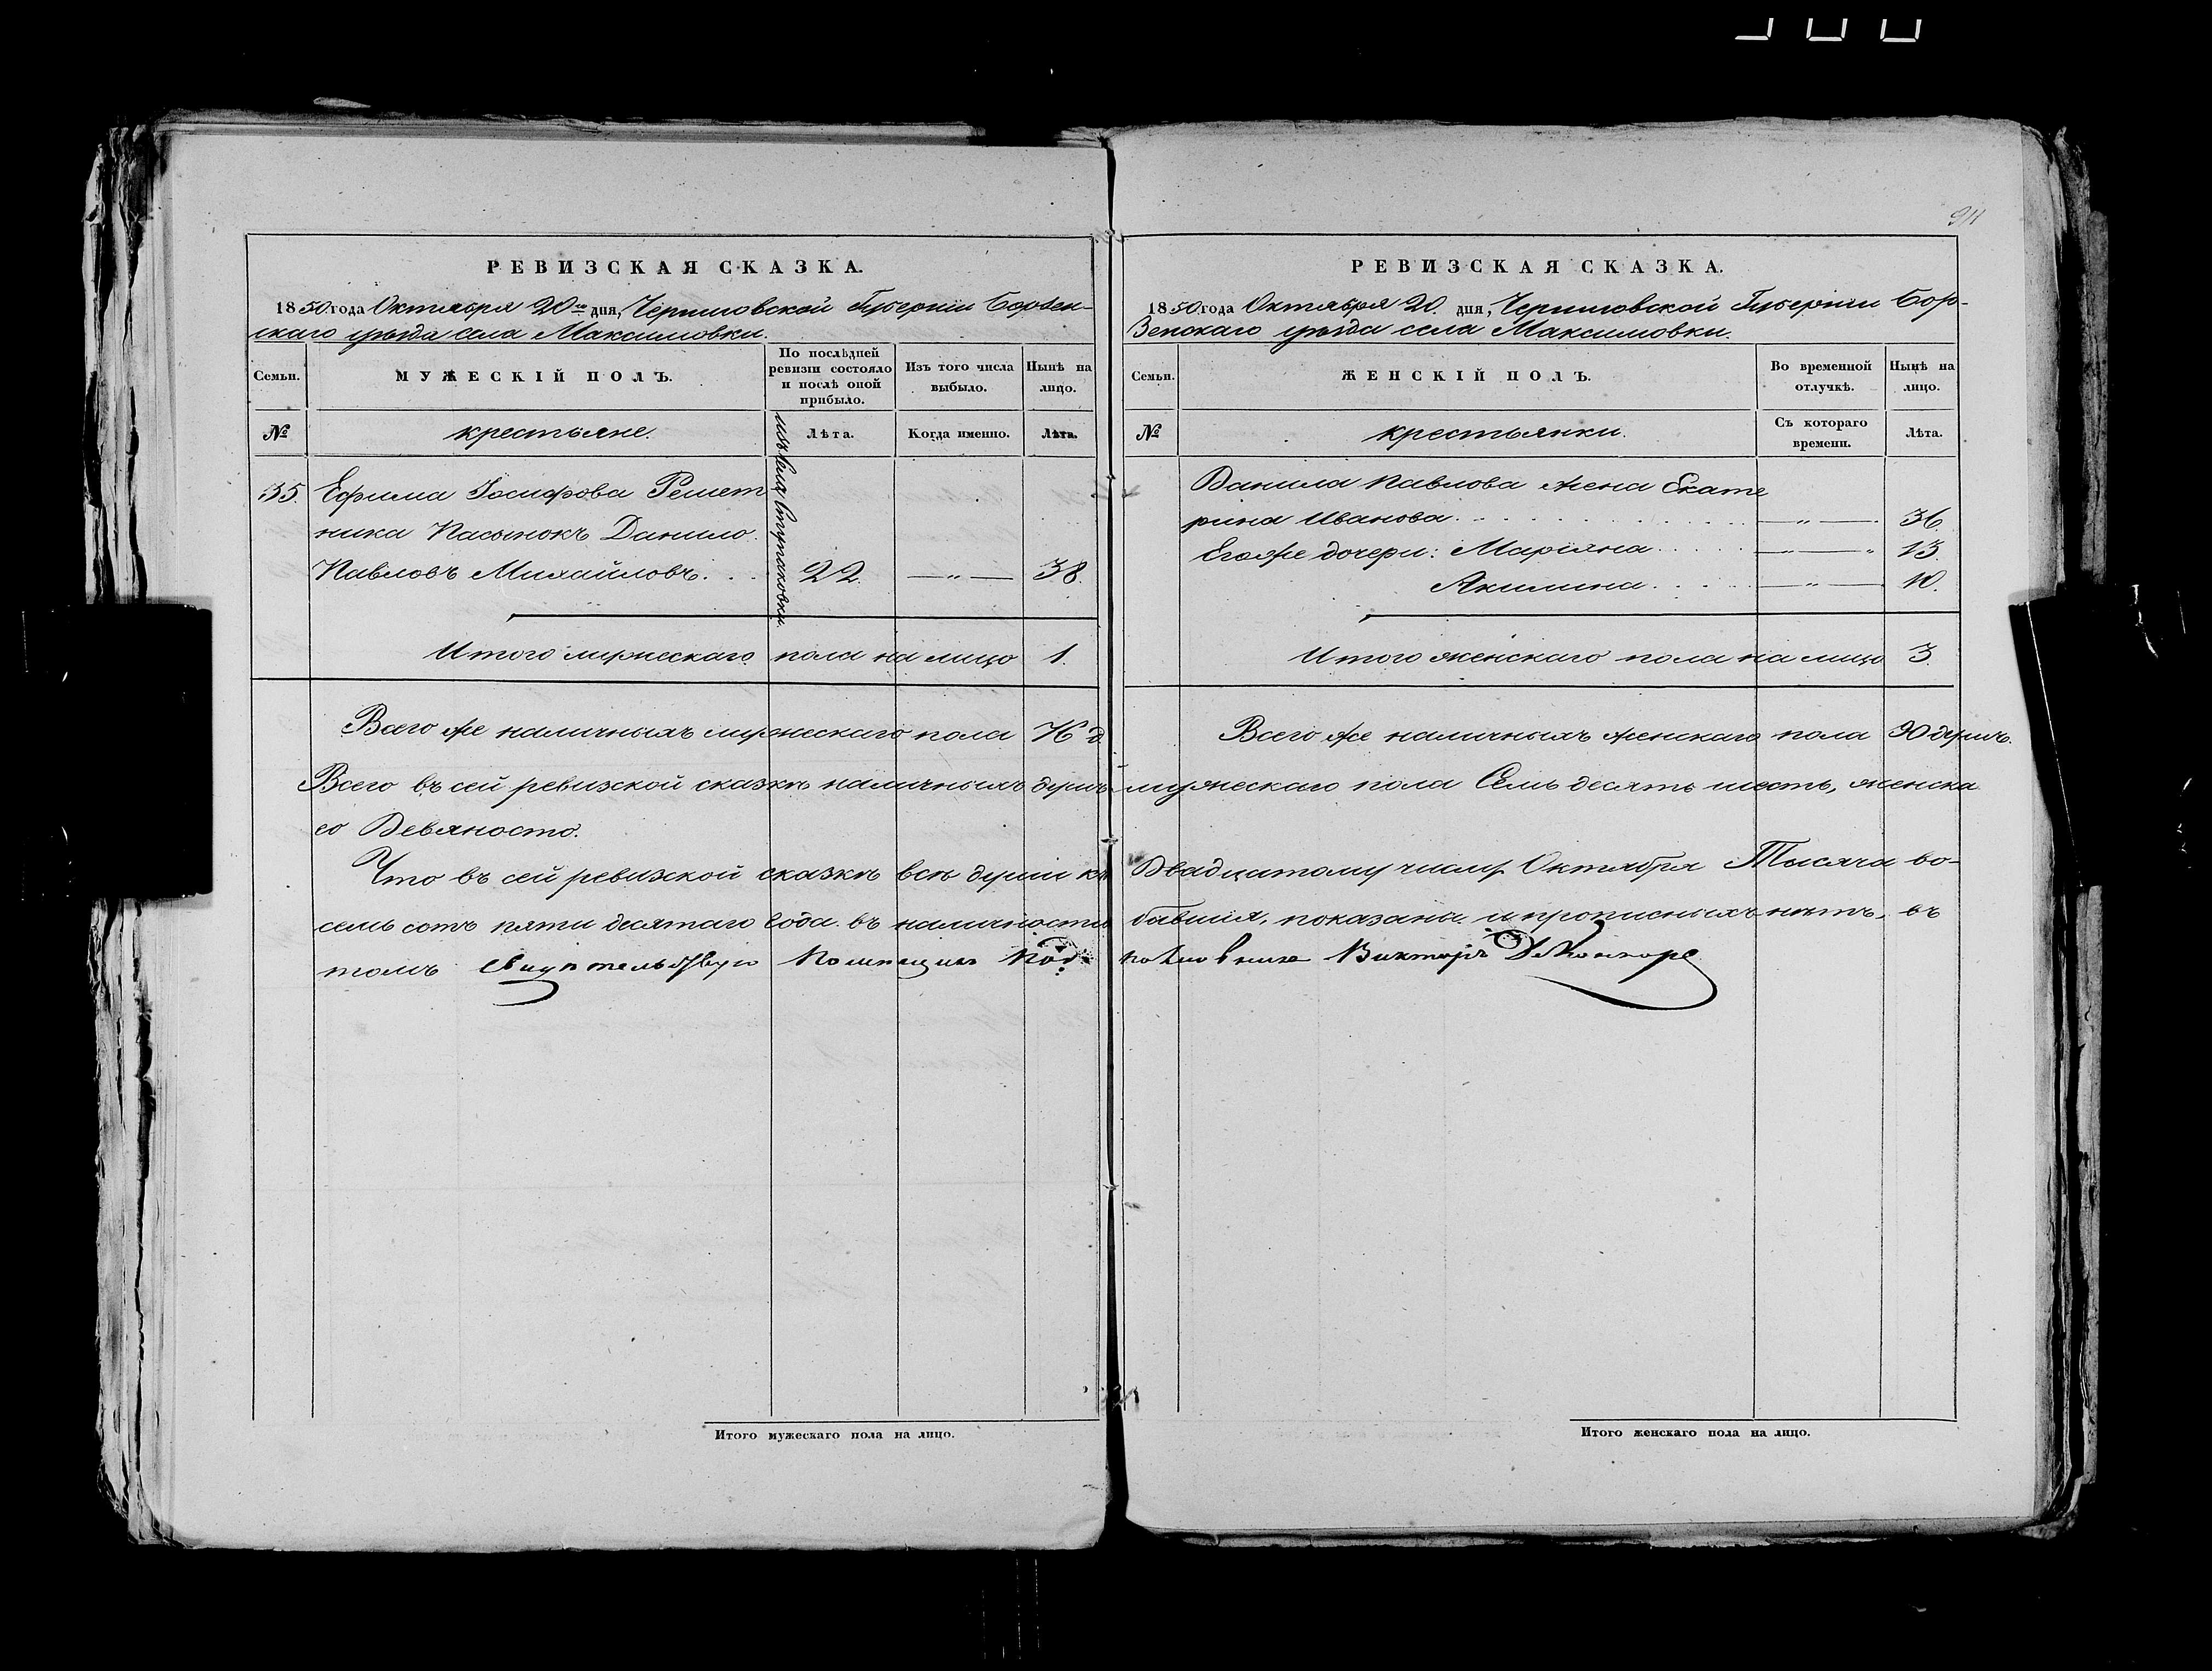 911
РЕВИЗСКАЯ СКАЗКА.
1850 года Октября 20го дня, Черниговской Губернии Борзен-
скаго уѣзда села Максимовки.
Семьи.
МУЖЕСКІЙ ПОЛЪ.
По послѣдней
ревизіи состояло
и послѣ оной
прибыло.
Изъ того числа
выбыло.
Нынѣ на
лицо.
№
крестьяне.
Лѣта.
Когда именно.
Лѣта.
35.
Ефима Іосифова Решет
ника Пасынокъ Данило
Павловъ Михайловъ. . . 22. —„— 38.
изъ села Ступаковки.
Итого мужескаго пола на лицо 1.
Всего же наличныхъ мужескаго пола 76 д.
РЕВИЗСКАЯ СКАЗКА.
1850 года Октября 20. дня, Черниговской Губерніи Бор-
зенскаго уѣзда села Максимовки.
Семьи.
ЖЕНСКІЙ ПОЛЪ.
Во временной
отлучкѣ.
Нынѣ на
лицо.
№
крестьянки.
Съ котораго
времени.
Лѣта.
Данила Павлова жена Екате
рина Иванова. . . . —„— 36.
Егоже дочери: Маріяна . . . —„— 13.
Акилина . . . —„— 10.
Итого женскаго пола на лицо 3.
Всего же наличныхъ женскаго пола 90 душъ.
Всего въ сей ревизской сказкѣ наличныхъ душъ мужескаго пола Семь десять шесть, женска
го Девяносто.
Что въ сей ревизской сказкѣ всѣ души къ Двадцатому числу Октября Тысяча во-
семь сотъ пяти десятаго года въ наличности бывшія, показаны и прописныхъ нѣтъ, въ
томъ свидѣтельствую Помещикъ Под: Викторъ
Итого мужескаго пола на лицо.
Итого женскаго пола на лицо.